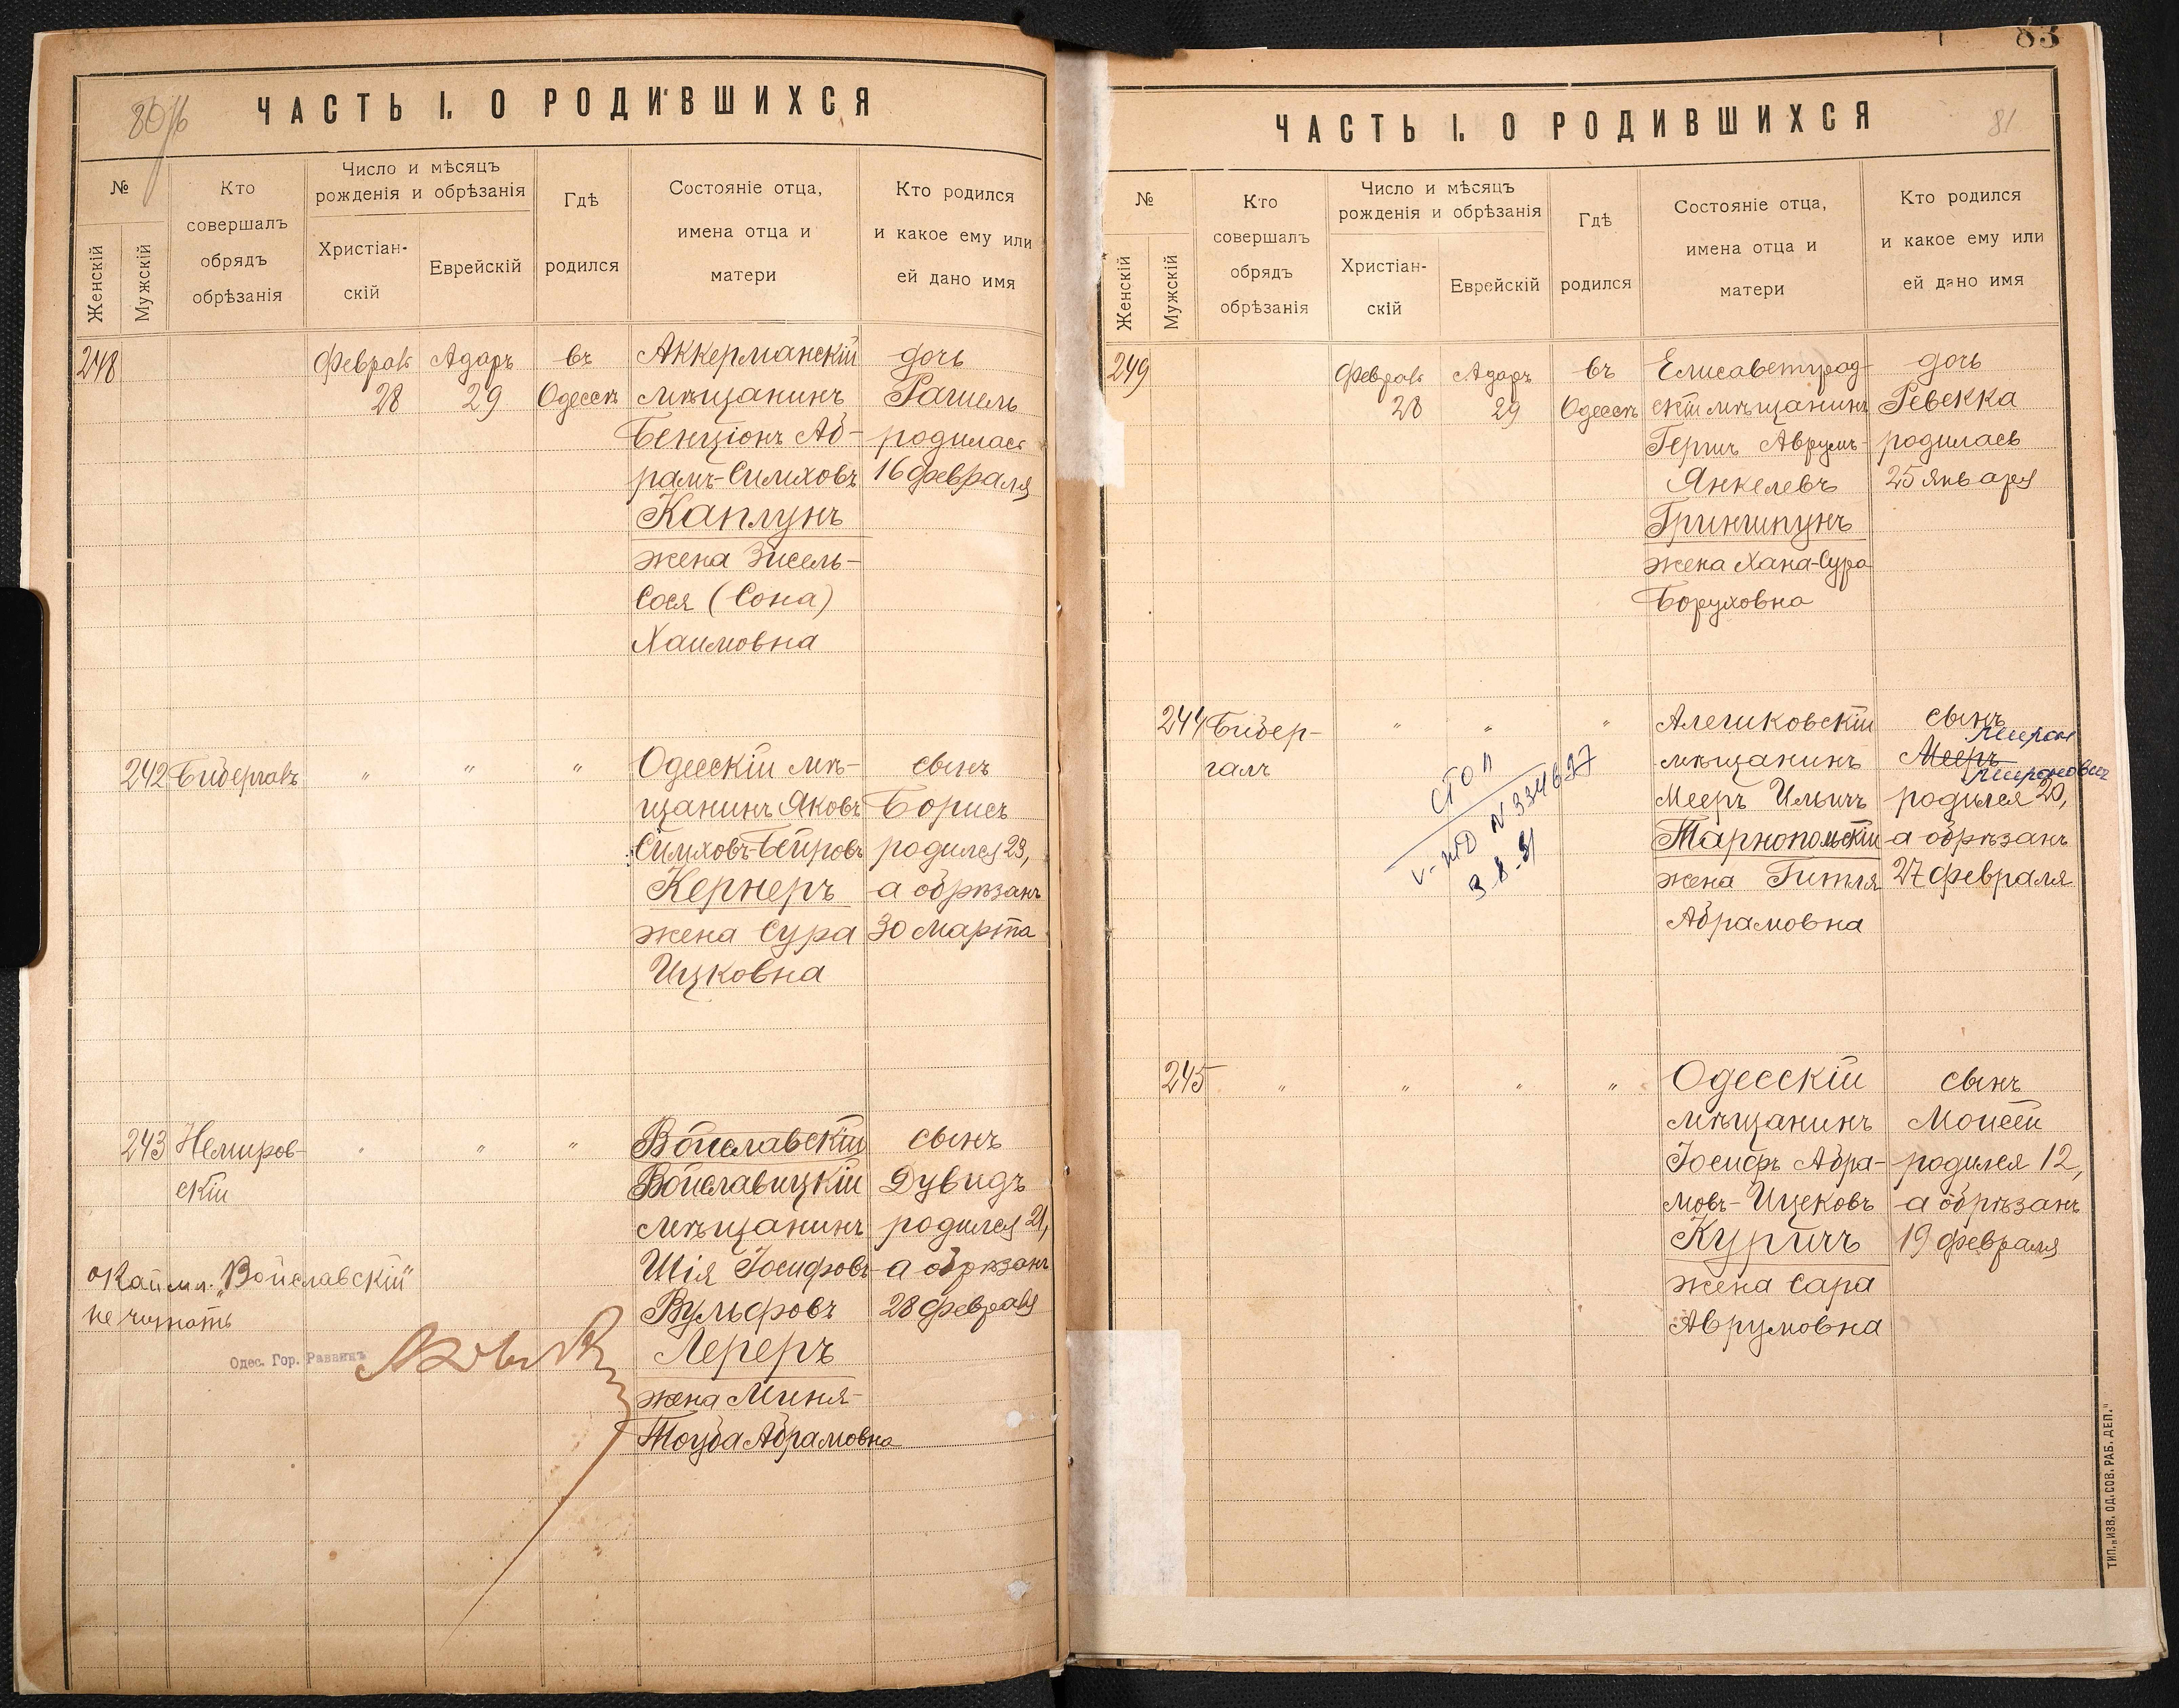 80/б
ЧАСТЬ I. О РОДИВШИХСЯ
№
Женскій
Мужскій
Кто
совершалъ
обрядъ
обрѣзанія
Число и мѣсяцъ
рожденія и обрѣзанія
Христіан-
скій
Еврейскій
Гдѣ
родился
Состояніе отца,
имена отца и
матери
Кто родился
и какое ему или
ей дано имя
248 Февраль Адаръ въ Аккерманскій дочь
28 29 Одессѣ мѣщанинъ Рашель
Бенціонъ Аб- родилась
рамъ-Симховъ 16 февраля
Каплунъ
жена Зисель-
Сося (Сона)
Хаимовна
242 Бидергалъ " " " Одесскій мѣ- сынъ
щанинъ Яковъ Борисъ
Симховъ-Бейровъ родился 23,
Кернеръ а обрѣзанъ
жена Сура 30 марта
Ицковна
243 Немиров- " " " Войславскій сынъ
скій Войславицкій Дувидъ
мѣщанинъ родился 21,
Шія Іосифовъ- а обрѣзанъ
Вульфовъ 28 февраля
Лереръ
жена Миня-
Тоуба Абрамовна
окаймл. "Войславскій"
не читать
Одес. Гор. Раввинъ
83
ЧАСТЬ I. О РОДИВШИХСЯ
81
№
Женскій
Мужскій
Кто
совершалъ
обрядъ
обрѣзанія
Число и мѣсяцъ
рожденія и обрѣзанія
Христіан-
скій
Еврейскій
Гдѣ
родился
Состояніе отца,
имена отца и
матери
Кто родился
и какое ему или
ей дано имя
249 Февраль Адаръ въ Елисаветград- дочь
28 29 Одессѣ скій мѣщанинъ Ревекка
Гершъ Аврумъ- родилась
Янкелевъ 25 января
Гриншпунъ
жена Хана-Сура
Боруховна
244 Бидер- " " " Алешковскій сынъ
Мирон
галъ мѣщанинъ Мееръ
Миронович
Мееръ Ильичъ родился 20,
Тарнопольскій а обрѣзанъ
жена Гитля 27 февраля
Абрамовна
СТОЛ
N 334627
3-8-51
245 " " " " Одесскій сынъ
мѣщанинъ Моисей
Іосифъ Абра- родился 12,
мовъ-Ицековъ а обрѣзанъ
Куричъ 19 февраля
жена Сара
Аврумовна
ТИП. „ИЗВ. ОД. СОВ. РАБ. ДЕП."